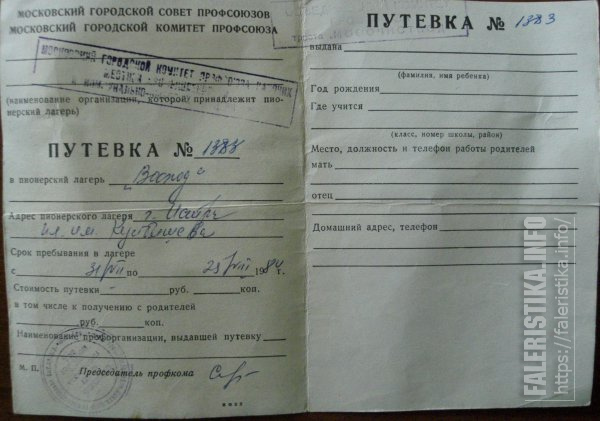 МОСКОВСКИЙ ГОРОДСКОЙ СОВЕТ ПРОФСОЮЗОВ
МОСКОВСКИЙ ГОРОДСКОЙ КОМИТЕТ ПРОФСОЮЗА
МОСКОВСКИЙ ГОРОДСКОЙ КОМИТЕТ
(наименование организации, которой принадлежит пио-
нерский лагерь)
ПУТЕВКА № 1383
в пионерский лагерь "Восход"
Адрес пионерского лагеря г. Истра
ул. им. Куйбышева
Срок пребывания в лагере
с 31/VII по 23/VIII 1984 г.
Стоимость путевки - руб. коп.
в том числе к получению с родителей
руб. коп.
Наименование профорганизации, выдавшей путевку
М. П. Председатель профкома
ПУТЕВКА № 1383
выдана
(фамилия, имя ребенка)
Год рождения
Где учится
(класс, номер школы, район)
Место, должность и телефон работы родителей
мать
отец
Домашний адрес, телефон
FALERISTIKA.INFO
https://faleristika.info/